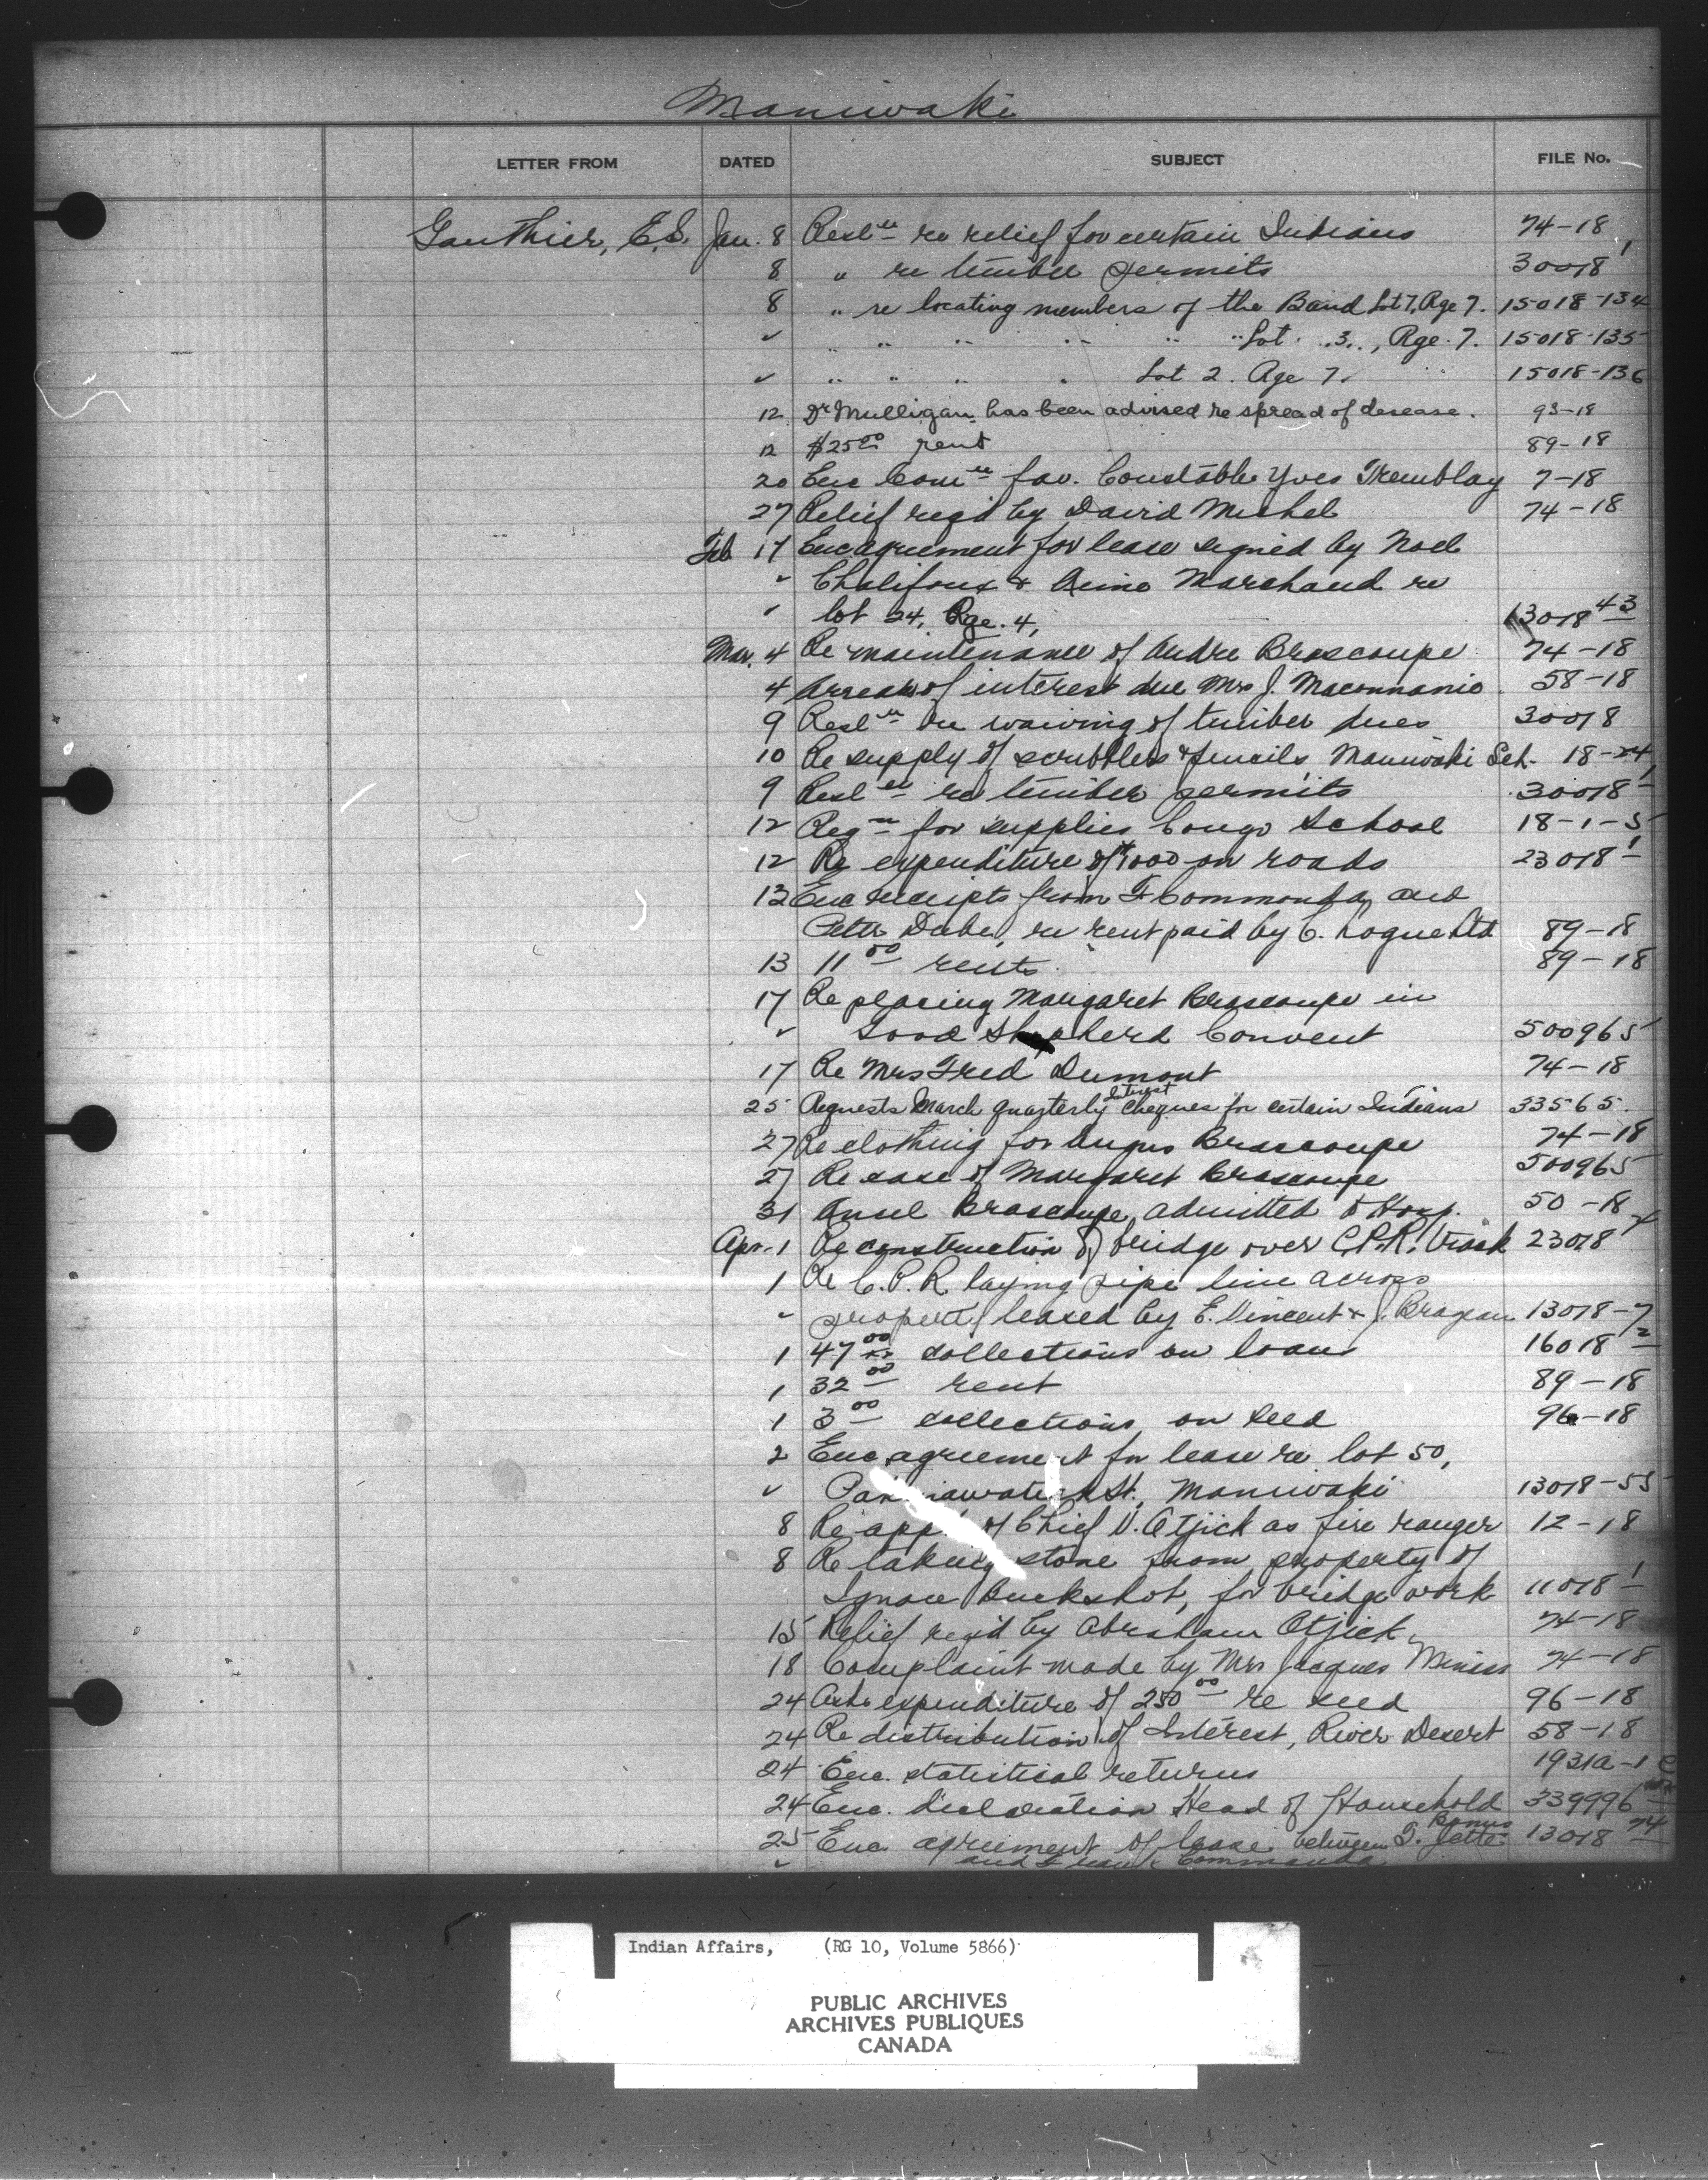 Maniwaki
LETTER FROM DATED SUBJECT FILE No.
Gauthier, E.S. Jan. 8 Resl<sup>n</sup> re relief for certain Indians 74-18
8 " re timber permits 30018<sup>1</sup>
8 " re locating members of the Band Lot 7, Rge 7. 15018-134
" " " " " " " Lot 3, Rge. 7. 15018-135
" " " " " Lot 2. Rge 7. 15018-136
12 Dr Mulligan has been advised re spread of desease. 93-18
12 $25<sup>00</sup> rent 89-18
20 Enc Com<sup>n</sup> fav. Constable Yves Tremblay 7-18
27 Relief reqd by David Michel 74-18
Feb 17 Enc agreement for lease signed by Noel
" Chalifoux & Marchand re
" lot 24, Rge. 4, 13018<sup>43</sup>
Mar. 4 Re maintenance of Andre Brascoupe 74-18
4 Arrears of interest due Mrs J. 58-18
9 Resl<sup>n</sup> re waiving of timber dues 30018
10 Re supply of scribblers & pencils, Maniwaki Sch. 18-24
9 Resl<sup>n</sup> re timber permits 30018<sup>1</sup>
12 Reqn for supplies Congo School 18-1-5
12 Re expenditure of $1000 on roads 23018<sup>1</sup>
13 Enc receipts from F. Commonda and
Peter Dube, re rent paid by C. Logue Ltd 89-18
13 11<sup>00</sup> rents 89-18
17 Re placing Margaret Brascoupe in
" Good Shepherd Convent 500965
17 Re Mrs Fred Dumont 74-18
25 Requests March quarterly Interest cheques for certain Indians 33565.
27 Re clothing for Angus Brascoupe 74-18
27 Re case of Margaret Brascoupe 500965
31 Ansel Brascoupe admitted to Hosp. 50-18
Apr. 1 Re construction of bridge over C.P.R. track 23018
1 Re C.P.R laying pipe line across
" property leased by E. Vincent & J. 13018-7
1 47<sup>00</sup> collections on loans 16018<sup>2</sup>
1 32<sup>00</sup> rent 89-18
1 3<sup>00</sup> collections on seed 96-18
2 Enc. agreement for lease re lot 50,
" St. Maniwaki 13018-55
8 Re of Chief V. Otjick as fire ranger 12-18
8 Re taking stone from property of
Ignace Buckshot, for bridge work 11018<sup>1</sup>
15 Relief reqd by Abraham Otjick 74-18
18 Complaint made by Mrs Jacques 74-18
24 Asks expenditure of 250<sup>00</sup> re seed 96-18
24 Re distribution of Interest, River Desert 58-18
24 Enc. statistical returns 1931A-1
24 Enc. declaration Head of Household 339996
25 Enc agreement of lease between T. Jette 13018<sup>74</sup>
" and Frank Commanda
Indian Affairs, (RG 10, Volume 5866)
PUBLIC ARCHIVES
ARCHIVES PUBLIQUES
CANADA